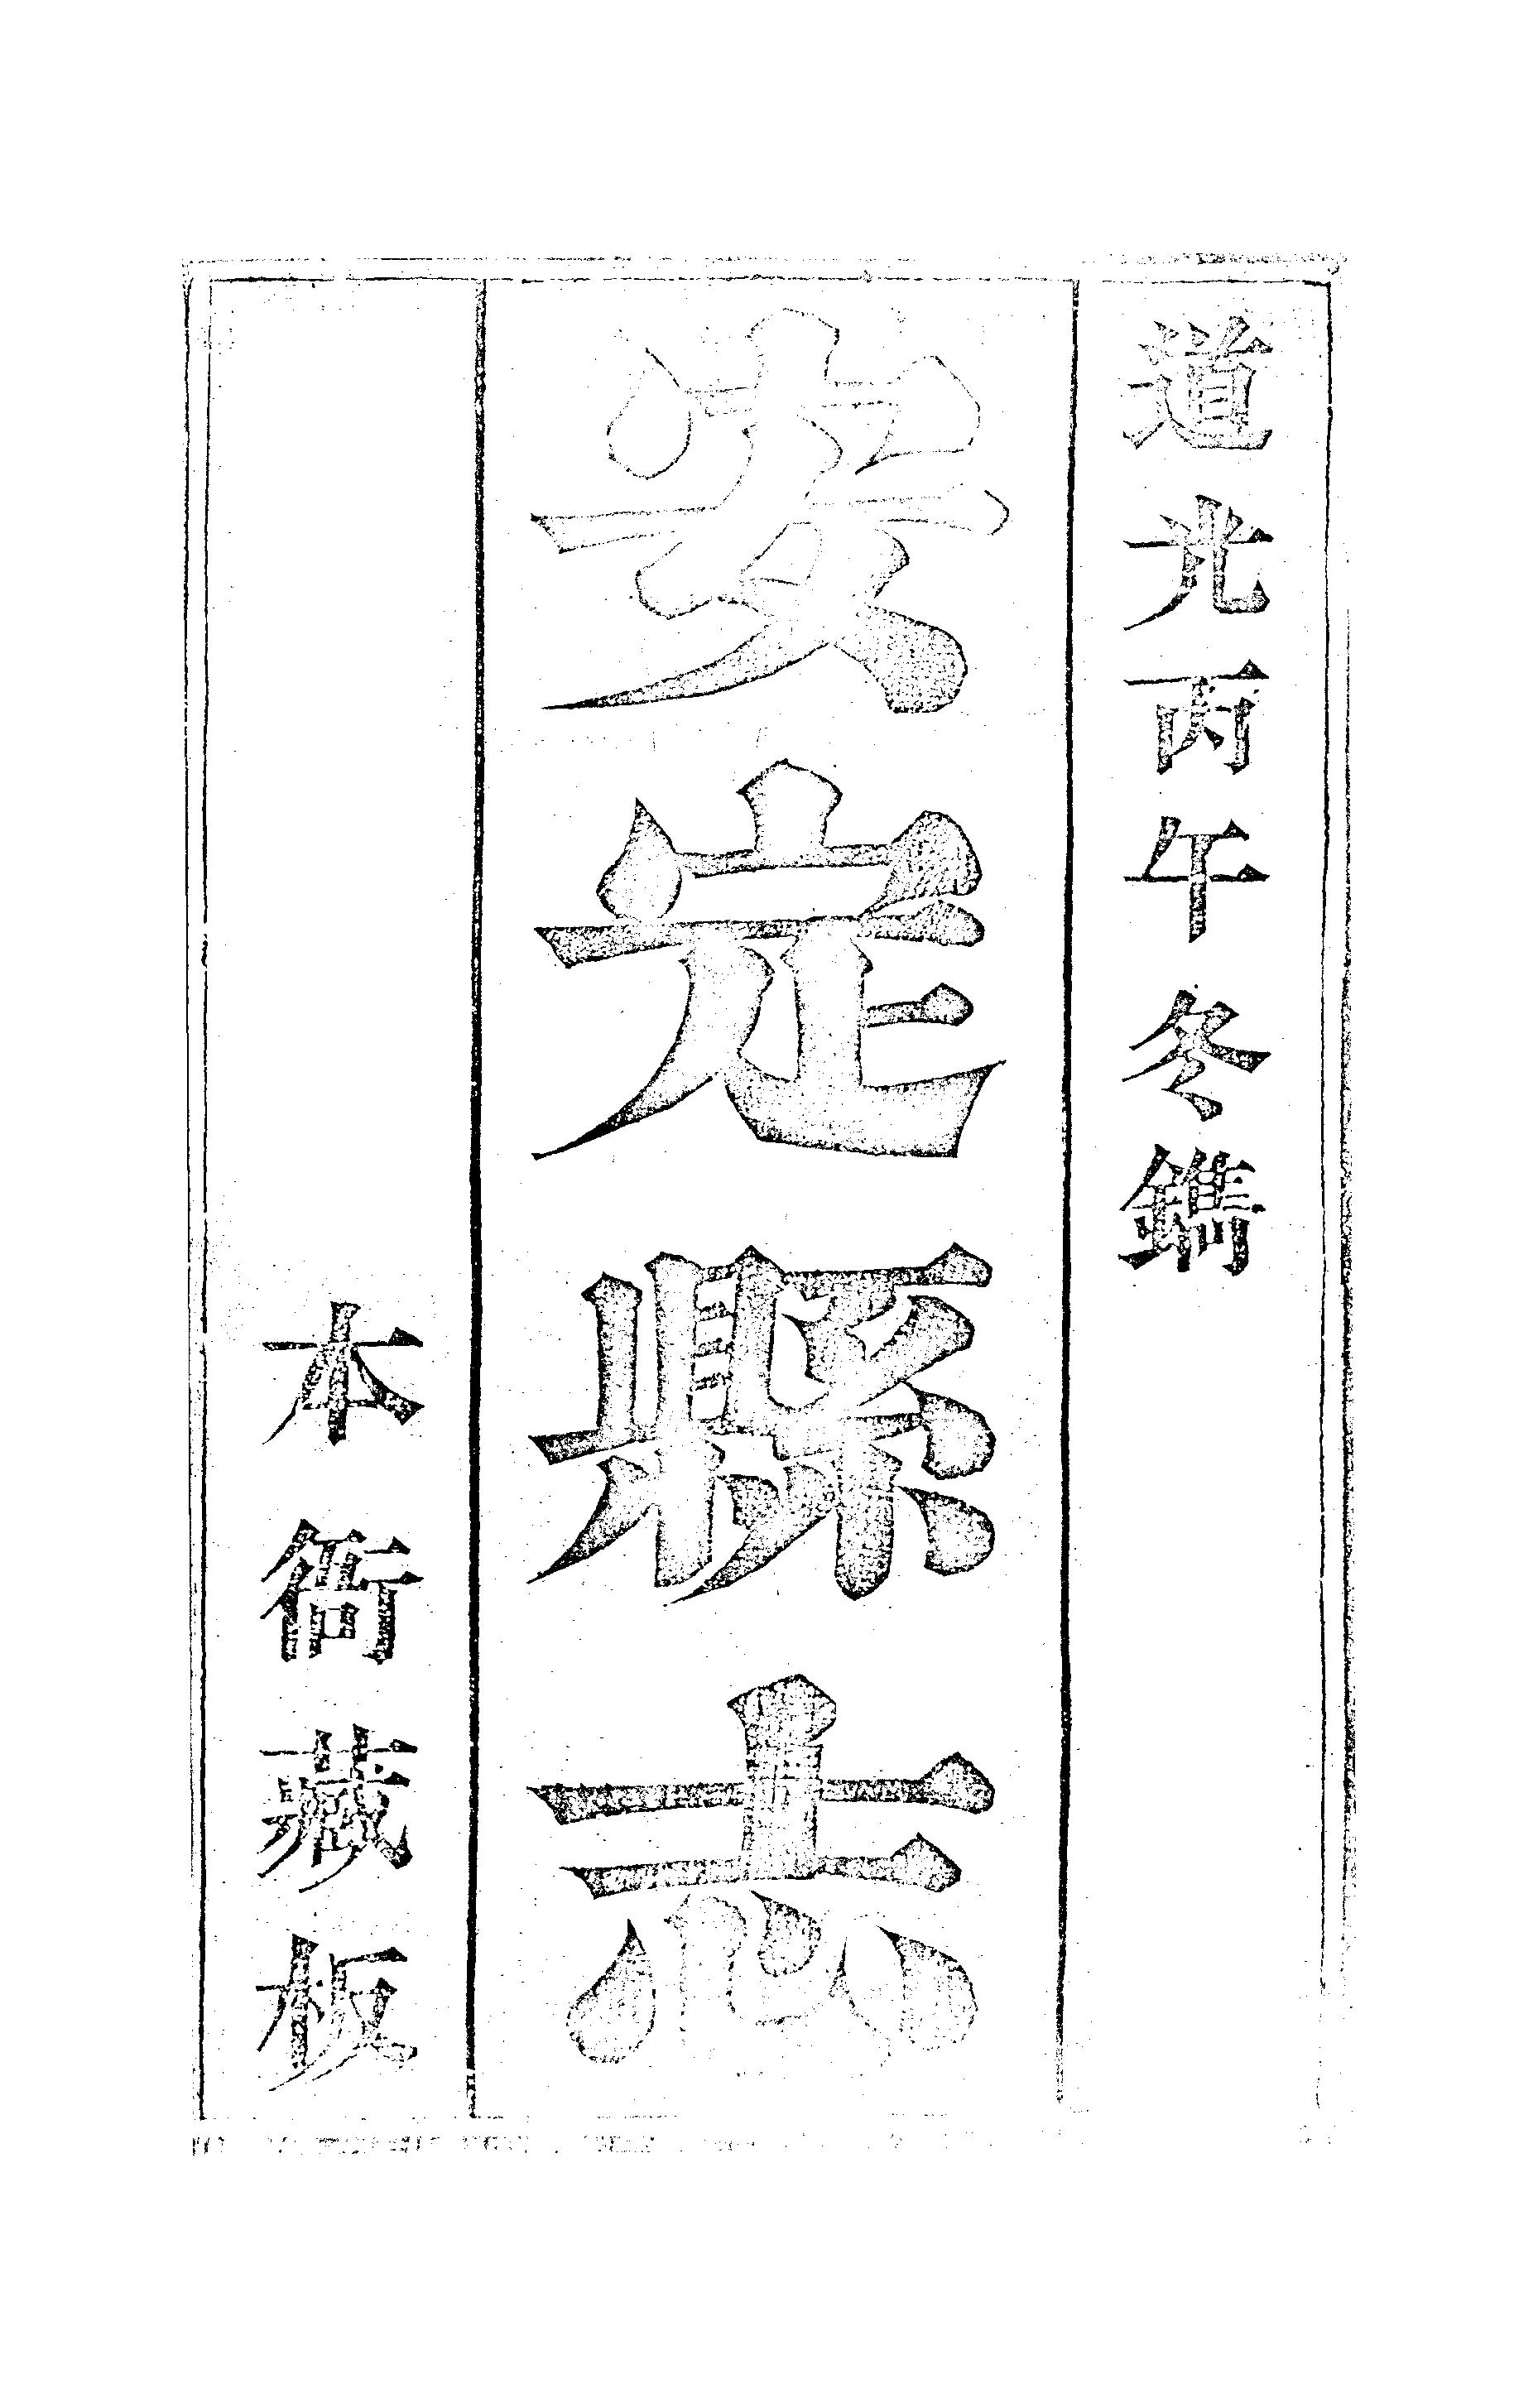 道光丙午冬鐫
安定縣志
本衙藏板